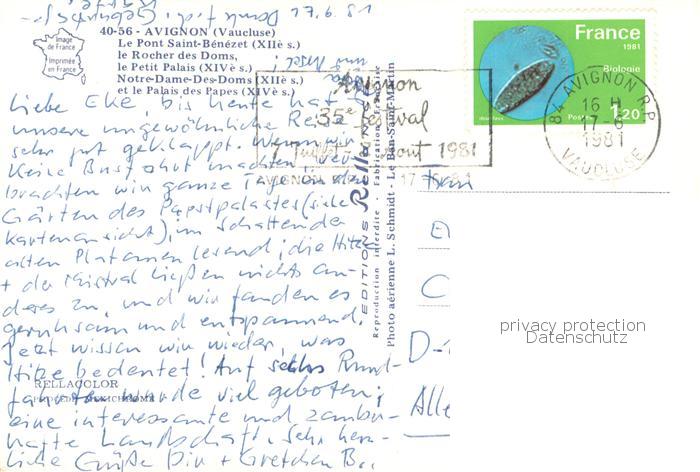 Image
de France
Imprimée
en France
40-56 - AVIGNON (Vaucluse)
Le Pont Saint-Bénézet (XIIè s.)
le Rocher des Doms,
le Petit Palais (XIVè s.)
Notre-Dame-Des-Doms (XIIè s.)
et le Palais des Papes (XIVè s.)
Liebe Elke, bis heute hat
unsere ungewöhnliche Reise
sehr gut geklappt. Wenn wir
keine Bustour machten, ver-
brachten wir ganze Tage in den
Gärten des Papstpalastes (siehe
Kartenansicht), im Schatten der
alten Platanen lesend; die Hitze
+ der Mistral ließen nichts an-
deres zu, und wir fanden es
geruhsam und entspannend.
Jetzt wissen wir wieder, was
Hitze bedeutet! Auf sechs Rund-
fahrten wurde viel geboten;
eine interessante und zauber-
hafte Landschaft. Sehr herz-
liche Grüße Din + Gretchen B..
RELLACOLOR
EDITIONS Rella
Reproduction interdite - Fabrication Française
Photo aérienne L. Schmidt - Le Ban-Saint-Martin
Avignon
35e festival
août 1981
France
1981
Biologie
Postes 1,20
84 AVIGNON R.P.
16 H
17-6
1981
VAUCLUSE
Frau
E
C
D-
Alle
privacy protection
Datenschutz